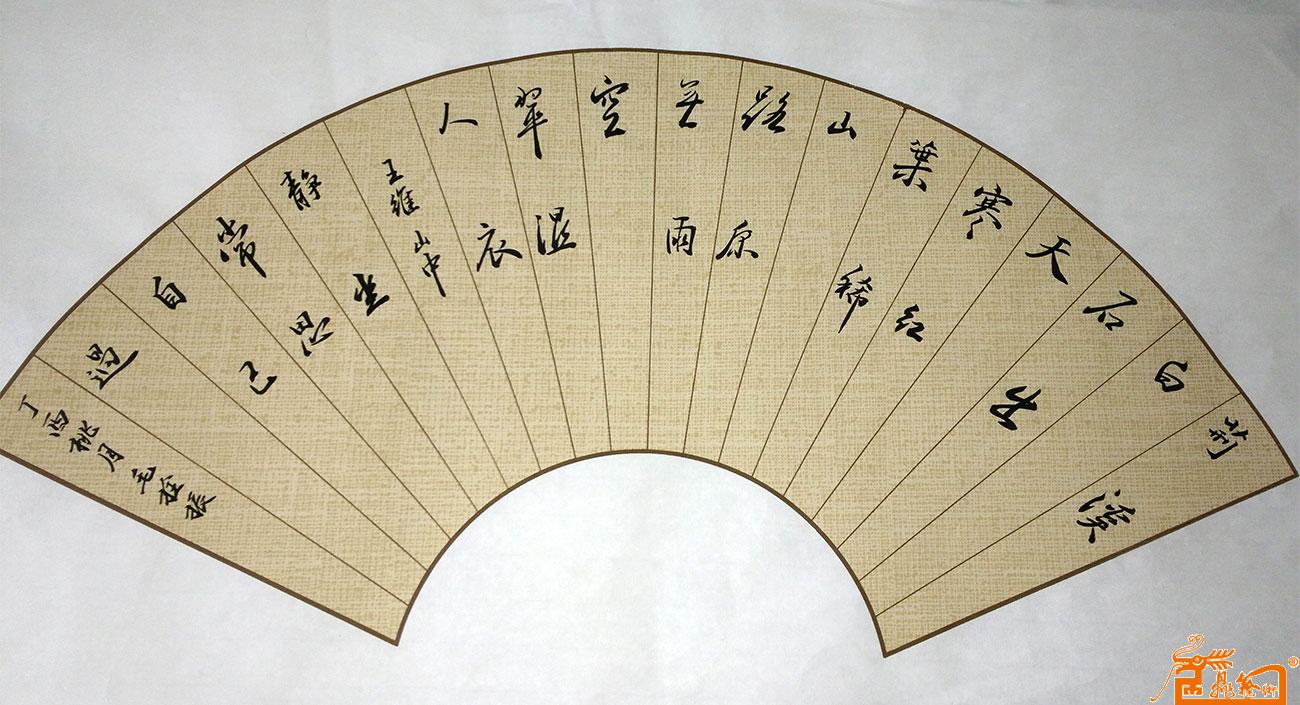 荆溪
白
石出
天
寒红
葉稀
山
路原
無雨
空
翠湿
人衣
王維山中
静坐
常思
自己
過
丁酉桃月毛拴振